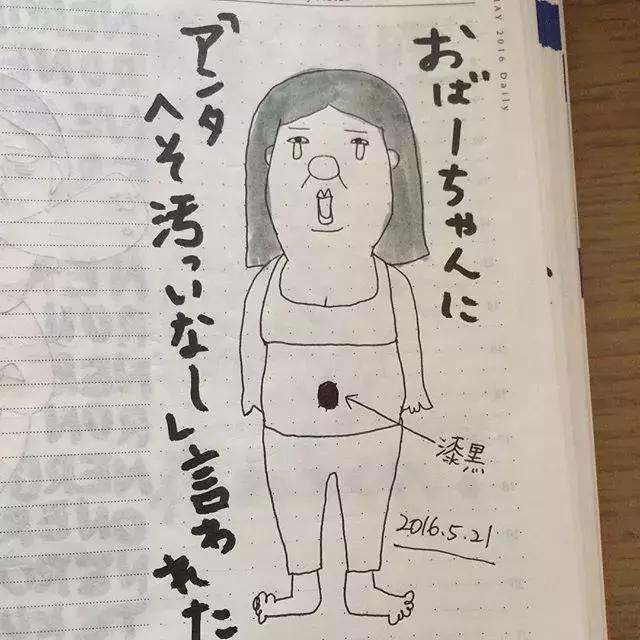 おばーちゃんに
「アンタ
へそ汚っいなー」言われた
漆黒
2016.5.21
MAY 2016 Daily